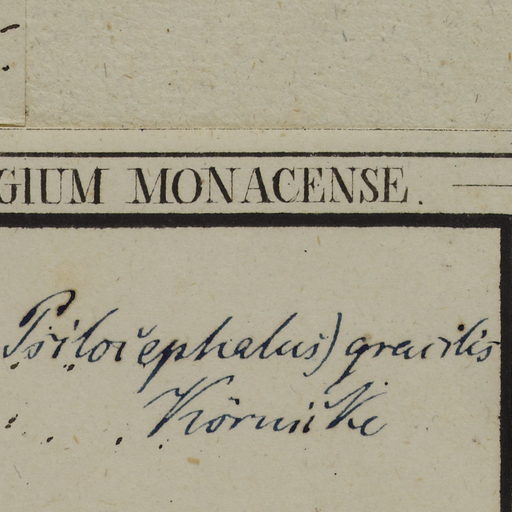 GIUM MONACENSE.
Psilocephalus) gracilis
Körnicke